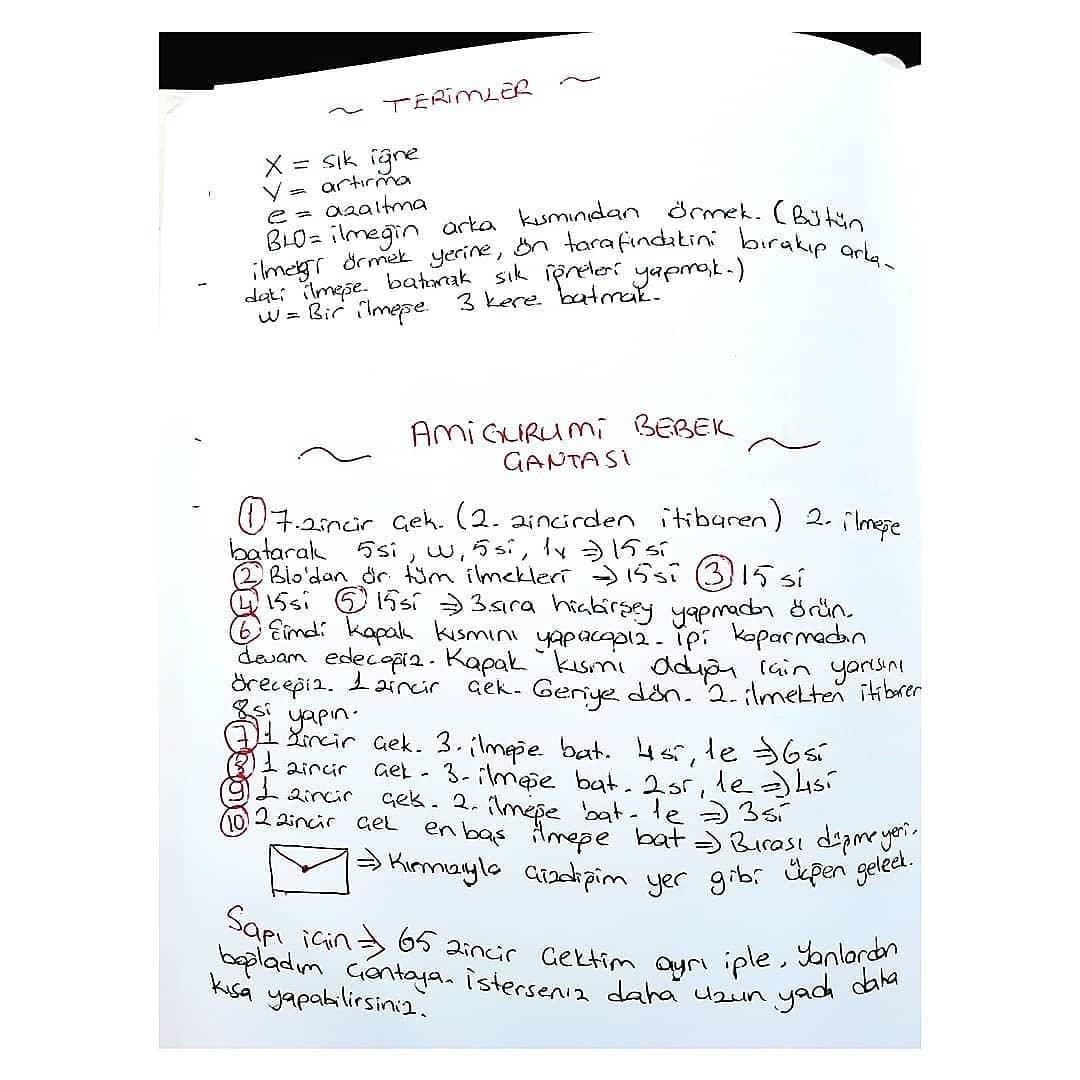 ~ TERİMLER ~
X = sık iğne
V = artırma
e = azaltma
BLO = ilmeğin arka kısmından örmek. (Bütün
ilmeği örmek yerine, ön tarafındakini bırakıp arka-
daki ilmeğe batarak sık iğneleri yapmak.)
W = Bir ilmeğe 3 kere batmak.
~ AMİGURUMİ BEBEK ~
ÇANTASI
① 7 zincir çek. (2. zincirden itibaren) 2. ilmeğe
batarak 5si, w, 5si, 1v ⇒ 15 si
② Blo'dan ör tüm ilmekleri → 15si ③ 15 si
④ 15si ⑤ 15si ⇒ 3 sıra hiçbirşey yapmadan örün.
⑥ Şimdi kapak kısmını yapacağız. İpi koparmadan
devam edeceğiz. Kapak kısmı olduğu için yarısını
öreceğiz. 1 zincir çek. Geriye dön. 2. ilmekten itibaren
8si yapın.
⑦ 1 zincir çek. 3. ilmeğe bat. 4si, 1e ⇒ 6si
⑧ 1 zincir çek - 3. ilmeğe bat. 2si, 1e ⇒ 4si
⑨ 1 zincir çek. 2. ilmeğe bat - 1e ⇒ 3si
⑩ 2 zincir çek en baş ilmeğe bat ⇒ Burası düğme yeri.
⇒ Kırmızıyla çizdiğim yer gibi üçgen gelecek.
Sapı için ⇒ 65 zincir çektim ayrı iple. Yanlardan
bağladım çantaya. İsterseniz daha uzun yada daha
kısa yapabilirsiniz.